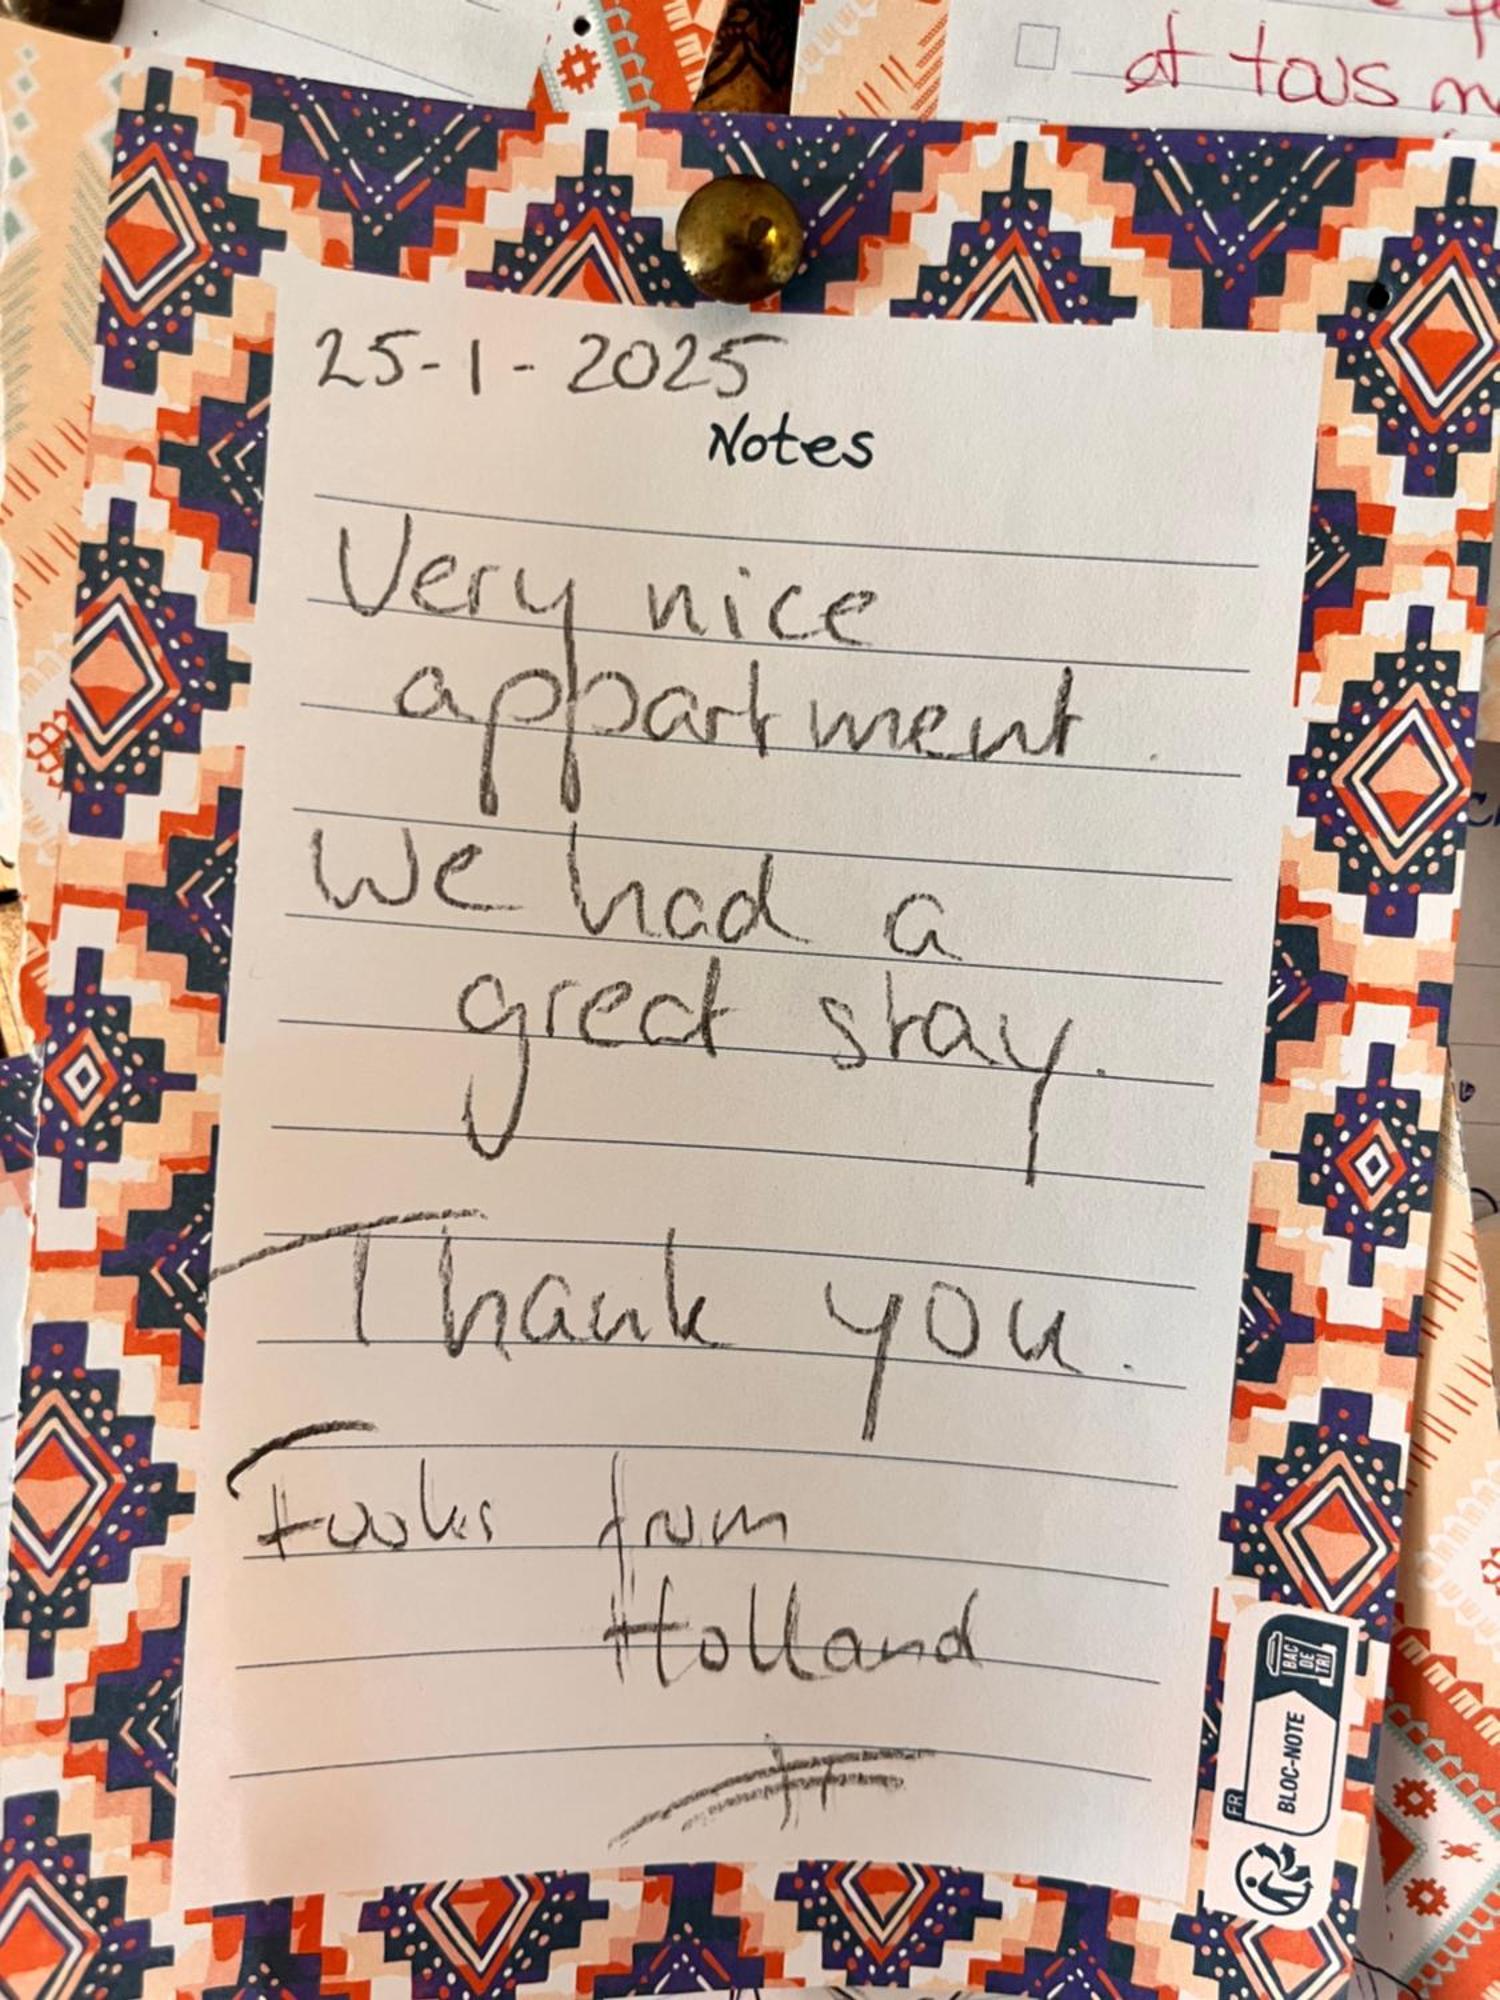 et tous
25-1-2025
Notes
Very nice
appartment.
We had a
great stay.
Thank you.
from
Holland
BAC
DE
TRI
BLOC-NOTE
FR